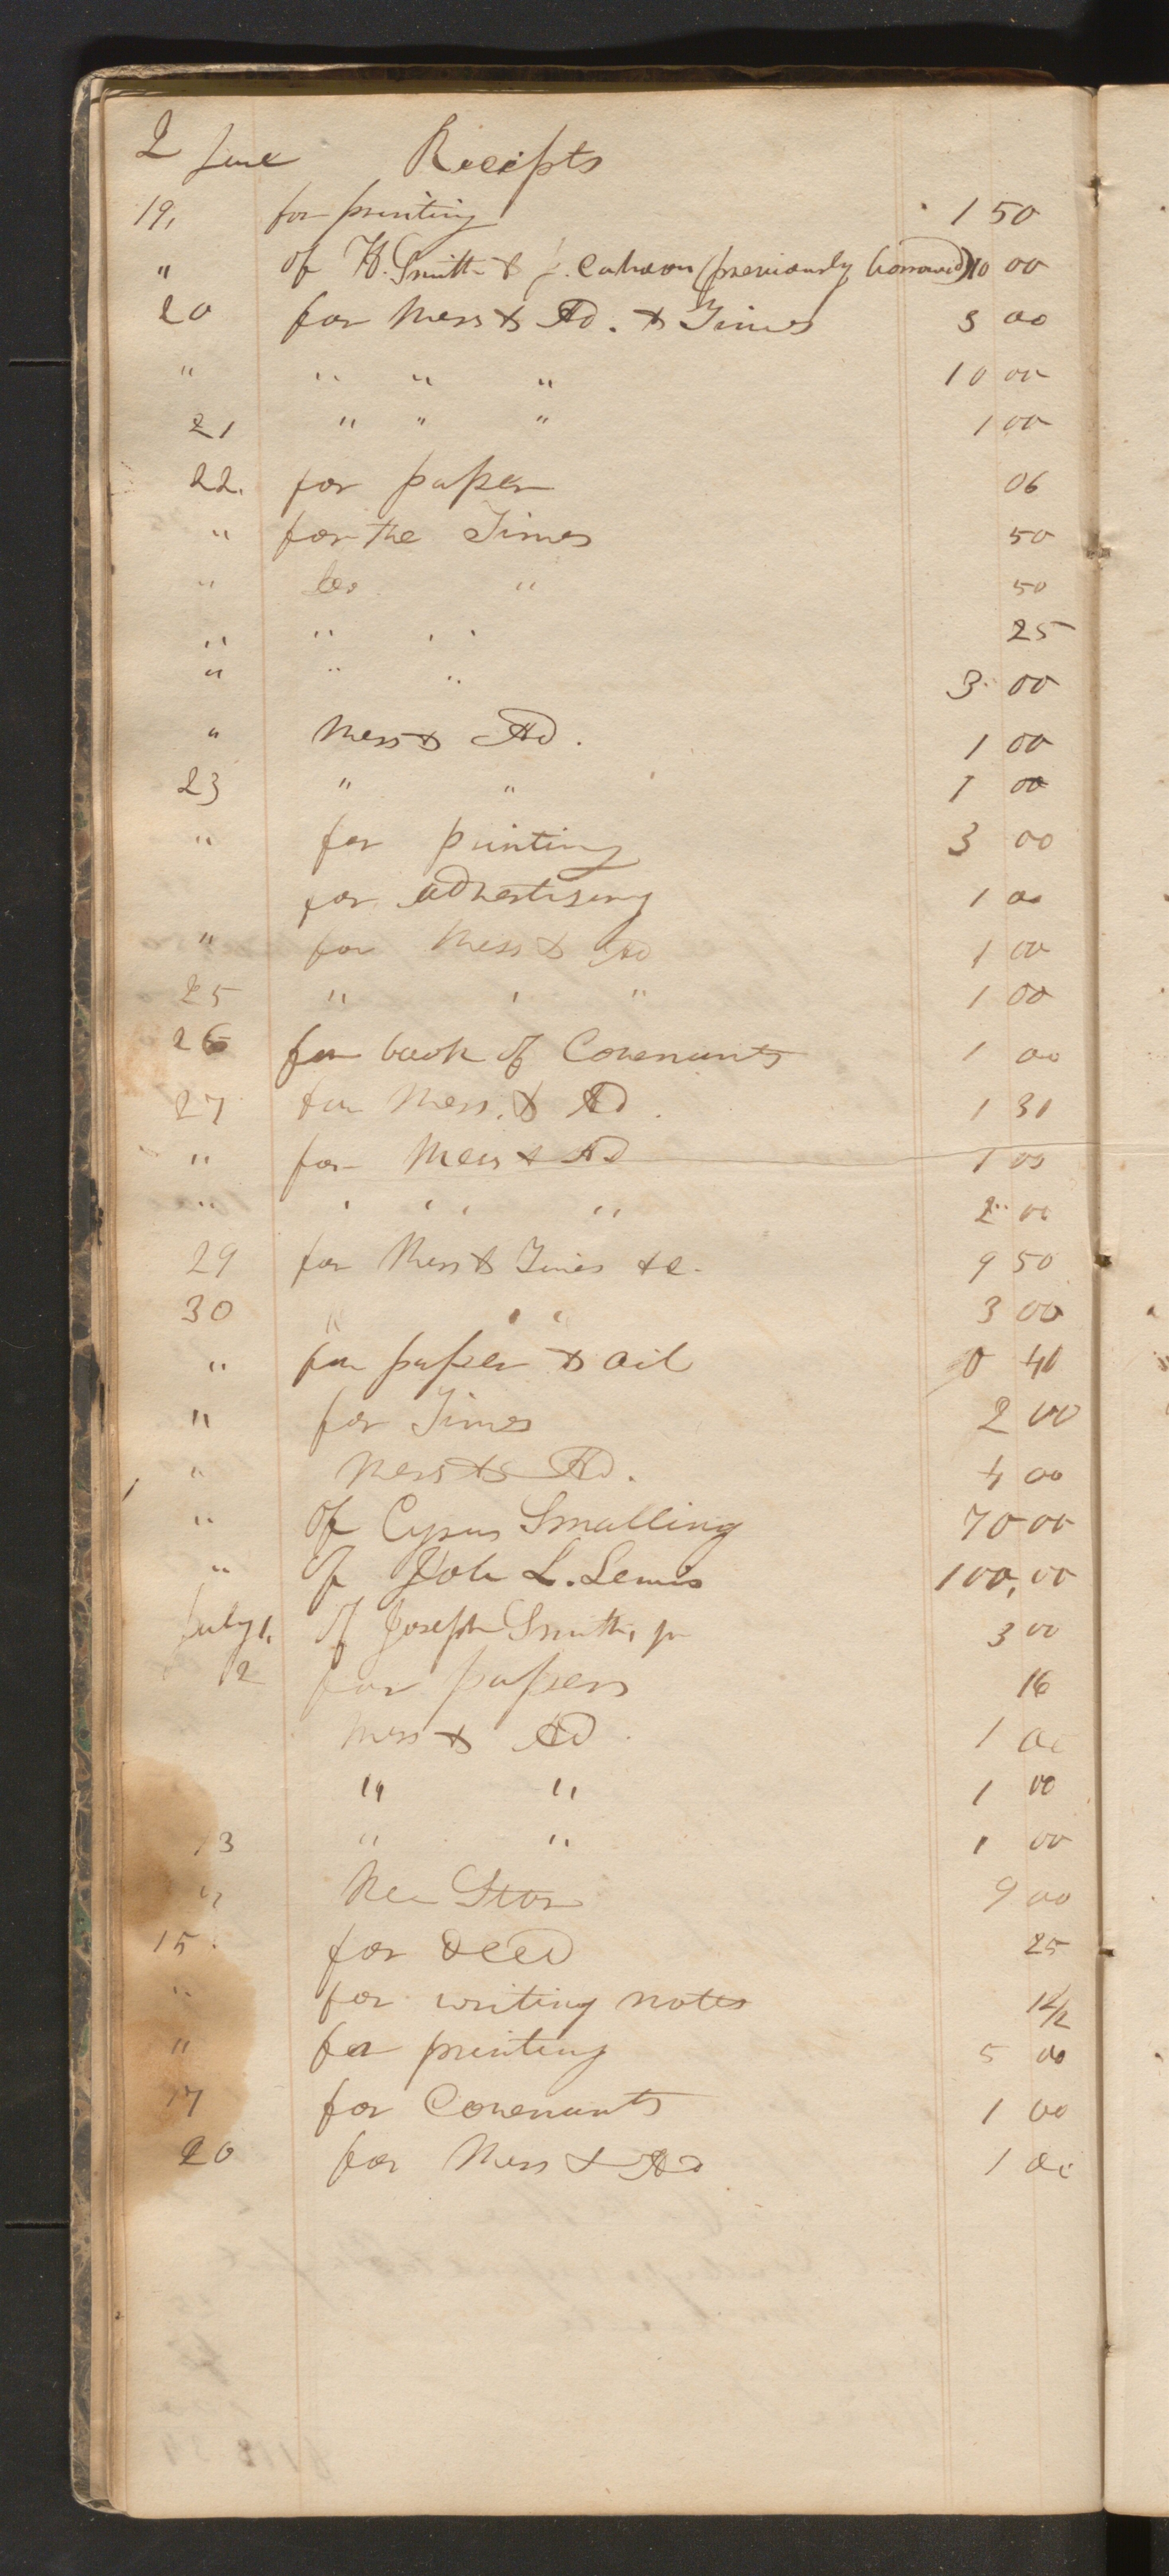 2 June Receipts
19, for printing 1 50
" of H. Smith & J. Cahoon (previously borrowed) 10 00
20 for Mess & Ad. & Times 3 00
" " " " 10 00
21 " " " 1 00
22. for paper 06
" for the Times 50
" Do. " 50
" " " 25
" " " 3 00
" Mess & Ad. 1 00
23 " " 1 00
" for printing 3 00
for advertising 1 00
" for Mess & Ad 1 00
25 " " " 1 00
26 for book of Covenants 1 00
27 for Mess. & Ad. 1 31
" for Mess & Ad 1 00
" " " " 2 00
29 for Mess & Times &c. 9 50
30 " " " 3 00
" for paper & oil 0 40
" for Times 2 00
" Mess & Ad. 4 00
" of Cyrus Smalling 70 00
" of Job L. Lewis 100,00
July 1, of Joseph Smith, jr 3 00
2 for papers 16
Mess & Ad. 1 00
" " 1 00
13 " " 1 00
" 9 00
15. for deed 25
" for writing notes 12/2
" for printing 5 00
17 for Covenants 1 00
20 for Mess & Ad 1 00